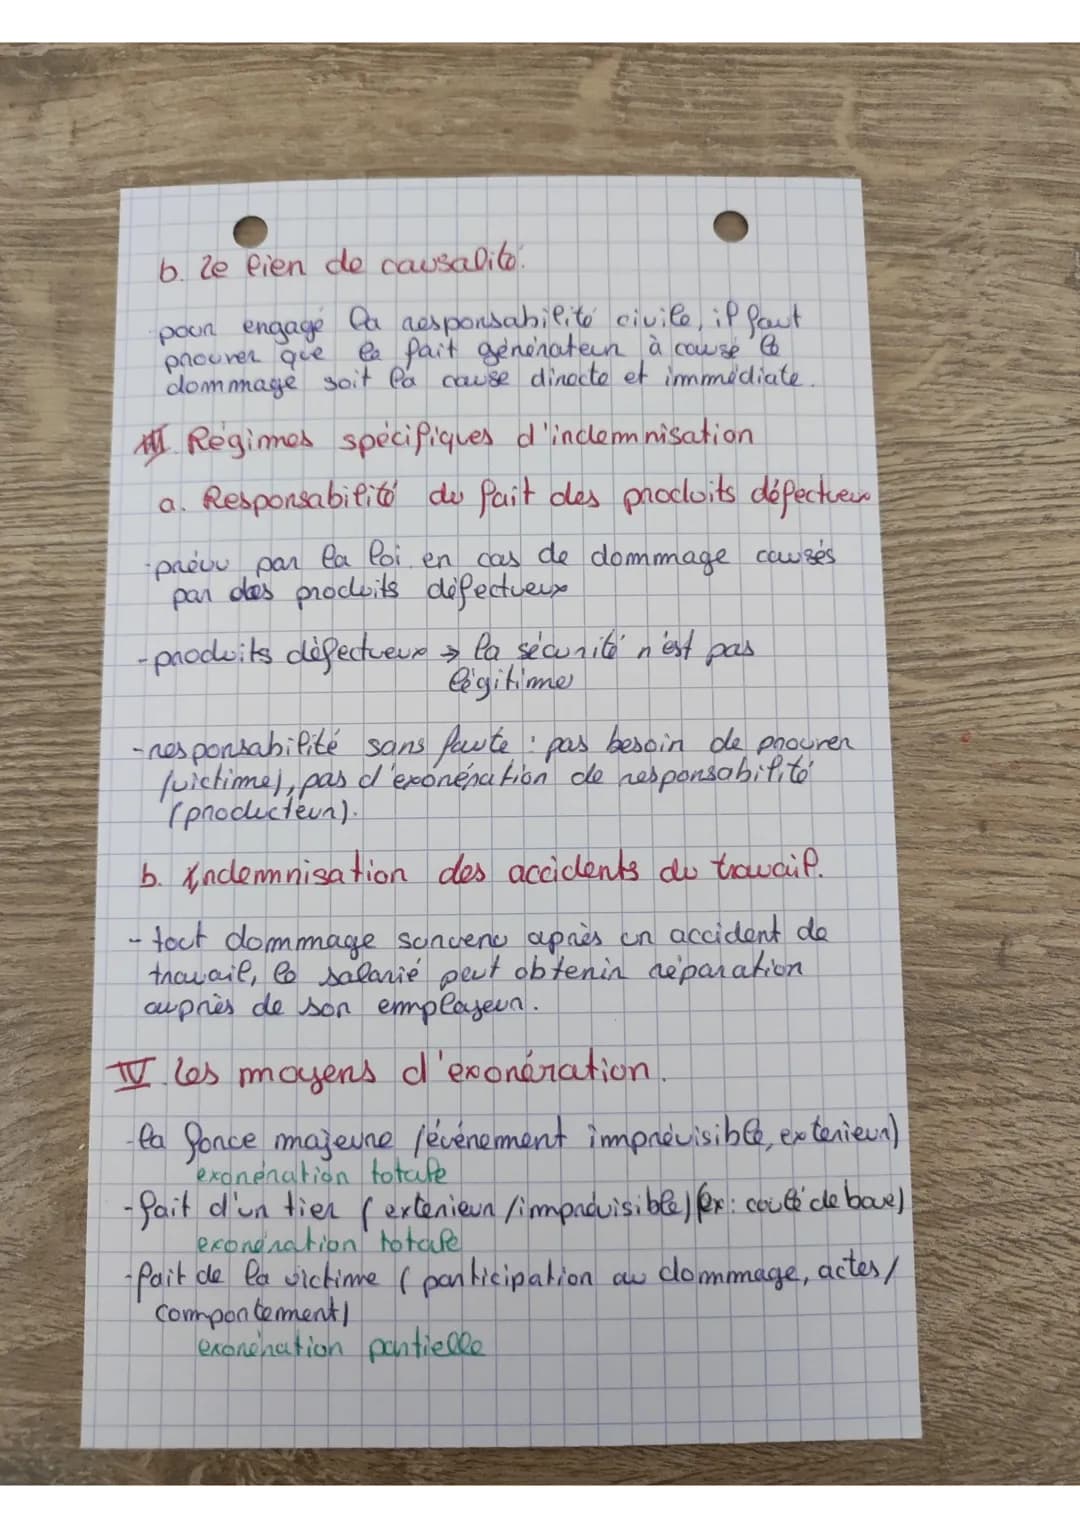 b. le lien de causalité.
pour engagé la responsabilité civile, il faut
prouver que le fait générateur à causé le
dommage soit la cause directe et immédiate.
III. Régimes spécifiques d'indemnisation
a. Responsabilité du fait des produits défectueux
- prévu par la loi en cas de dommage causés
par des produits défectueux
- produits défectueux → la sécurité n'est pas
légitime
- responsabilité sans faute : pas besoin de prouver
(victime), pas d'exonération de responsabilité
(producteur).
b. Indemnisation des accidents du travail.
- tout dommage survenu après un accident de
travail, le salarié peut obtenir réparation
auprès de son employeur.
IV les moyens d'exonération.
- la force majeure (événement imprévisible, exterieur)
exonération totale
- fait d'un tier (exterieur / imprévisible) (ex: coulé de boue)
exonération totale
- fait de la victime (participation au dommage, actes/
comportement)
exonération partielle